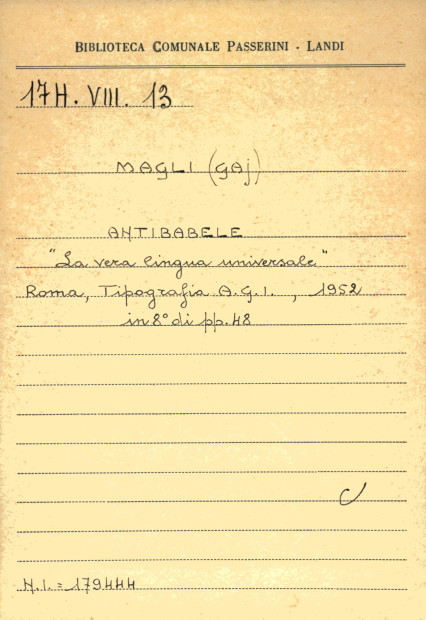 BIBLIOTECA COMUNALE PASSERINI - LANDI
17H. VIII. 13
MAGLI (GAJ)
ANTIBABELE
"La vera lingua universale"
Roma, Tipografia A.G.I., 1952
in 8° di pp. 48
N.I. = 179444